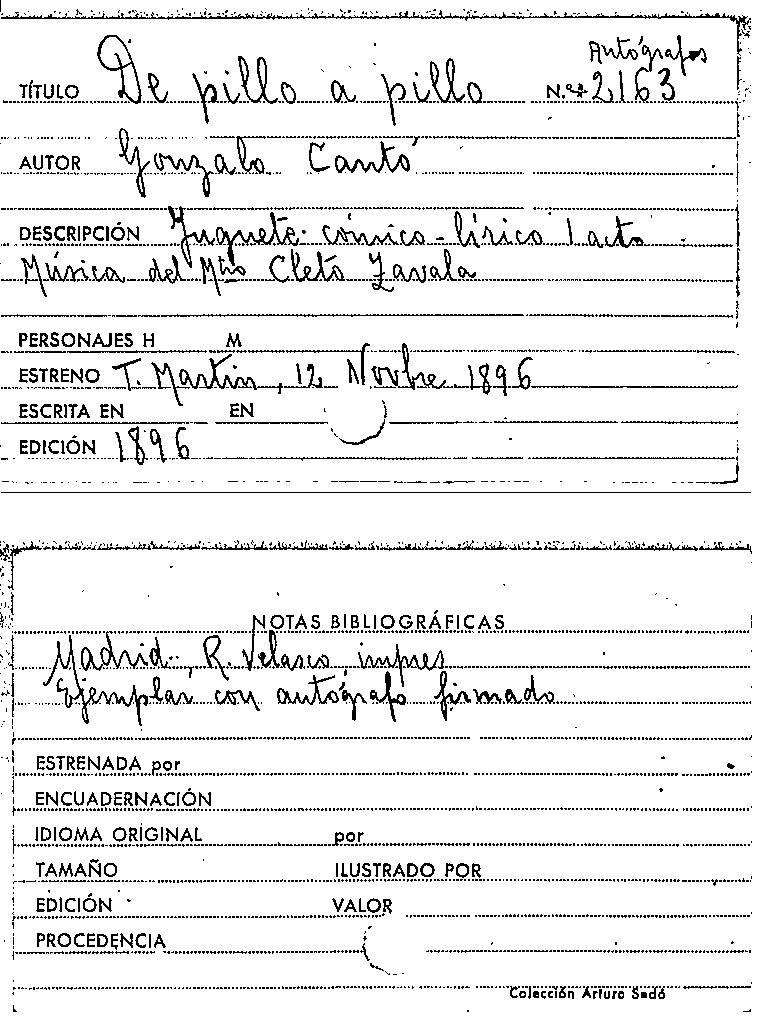 Autógrafos
TÍTULO De pillo a pillo N.º 2163
AUTOR Gonzalo Cantó
DESCRIPCIÓN Juguete cómico-lírico 1 acto
Música del Mtro Cleto Zavala
PERSONAJES H M
ESTRENO T. Martin, 12 Novbre 1896
ESCRITA EN EN
EDICIÓN 1896
NOTAS BIBLIOGRÁFICAS
Madrid, R. Velasco, impres
Ejemplar con autógrafo firmado
ESTRENADA por
ENCUADERNACIÓN
IDIOMA ORIGINAL por
TAMAÑO ILUSTRADO POR
EDICIÓN VALOR
PROCEDENCIA
Colección Arturo Sedó